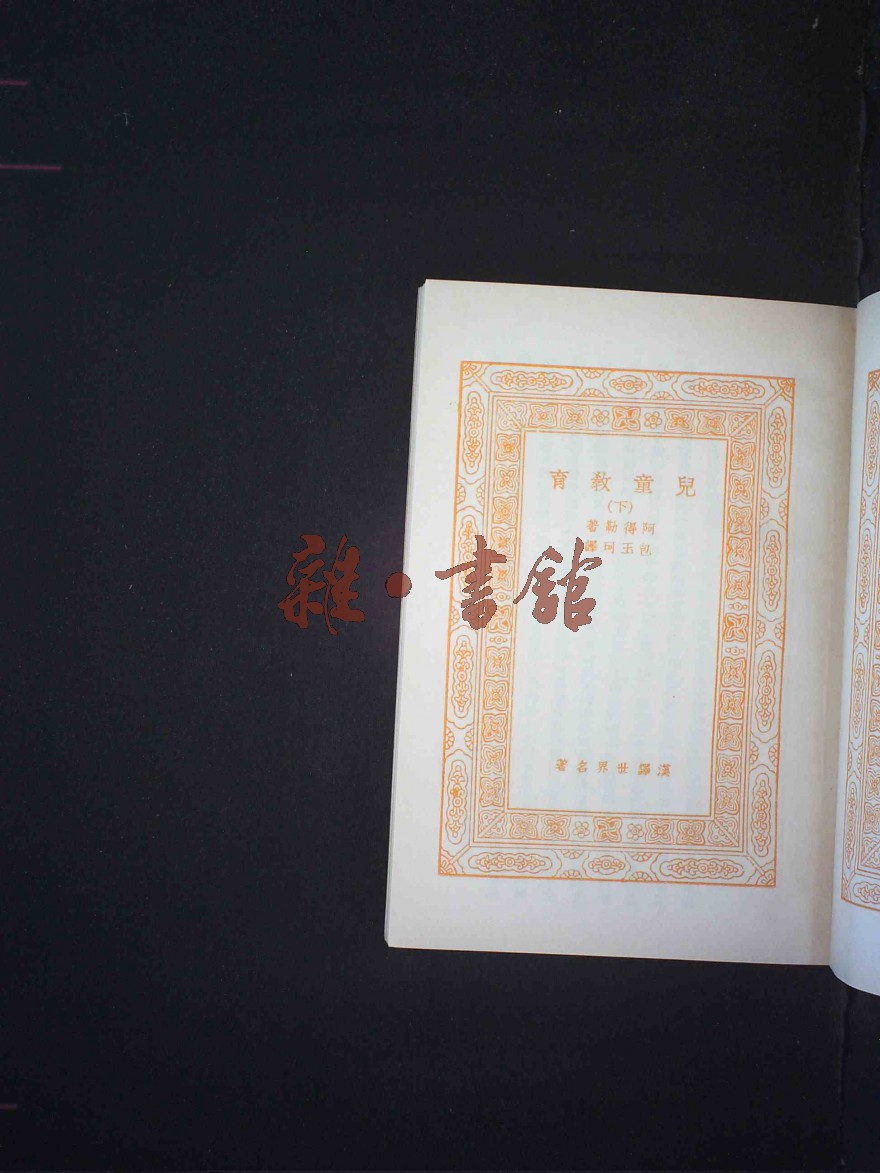 兒童教育
(下)
阿得勒著
包玉珂譯
雜·書館
漢譯世界名著